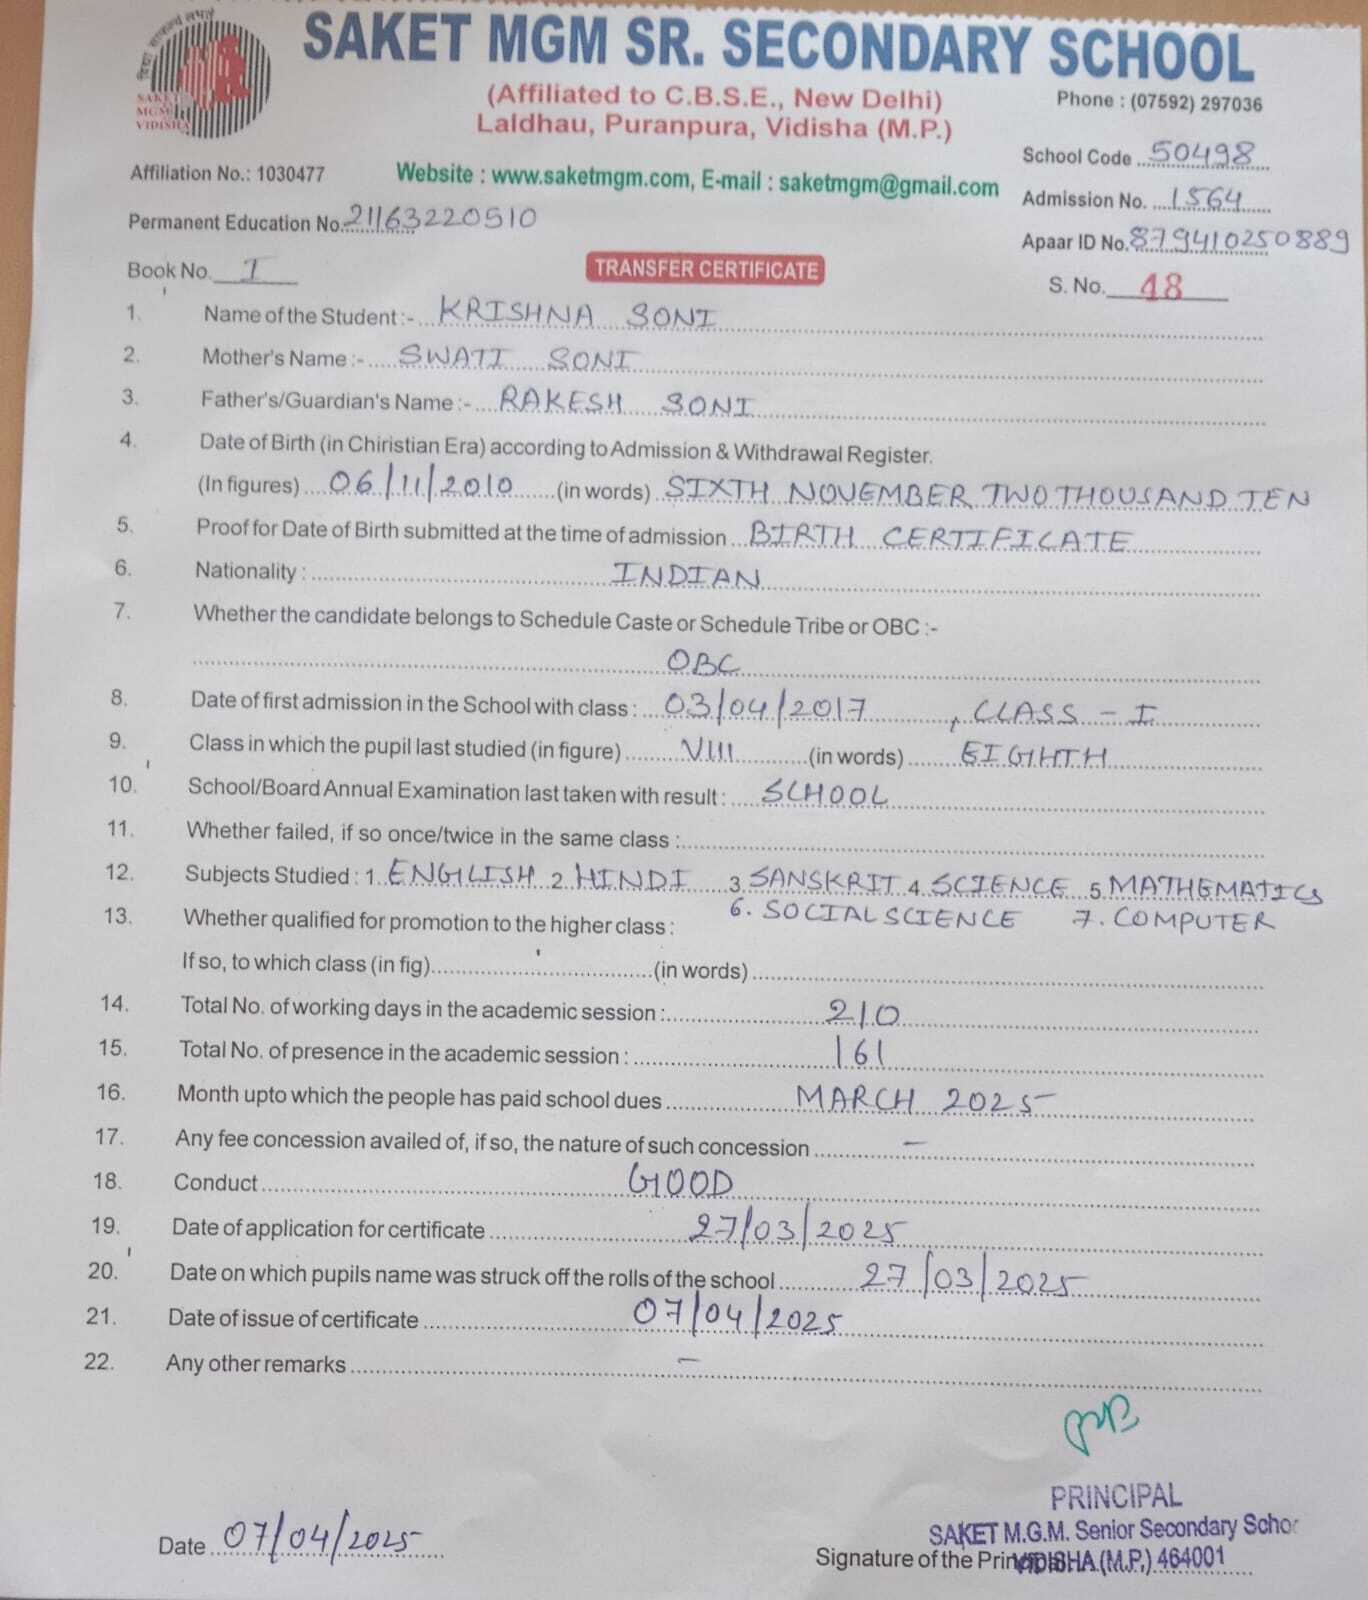 विद्या सामर्थ्यं लभते
SAKET
MGM
VIDISHA
SAKET MGM SR. SECONDARY SCHOOL
(Affiliated to C.B.S.E., New Delhi)
Phone : (07592) 297036
Laldhau, Puranpura, Vidisha (M.P.)
School Code 50498
Affiliation No.: 1030477
Website : www.saketmgm.com, E-mail : saketmgm@gmail.com
Admission No. 1564
Permanent Education No. 21163220510
Apaar ID No. 879410250889
Book No. I
TRANSFER CERTIFICATE
S. No. 48
1. Name of the Student :- KRISHNA SONI
2. Mother's Name :- SWATI SONI
3. Father's/Guardian's Name :- RAKESH SONI
4. Date of Birth (in Chiristian Era) according to Admission & Withdrawal Register.
(In figures) 06/11/2010 (in words) SIXTH NOVEMBER TWO THOUSAND TEN
5. Proof for Date of Birth submitted at the time of admission BIRTH CERTIFICATE
6. Nationality : INDIAN
7. Whether the candidate belongs to Schedule Caste or Schedule Tribe or OBC :-
OBC
8. Date of first admission in the School with class : 03/04/2017 , CLASS - I
9. Class in which the pupil last studied (in figure) VIII (in words) EIGHTH
10. School/Board Annual Examination last taken with result : SCHOOL
11. Whether failed, if so once/twice in the same class :
12. Subjects Studied : 1. ENGLISH 2. HINDI 3. SANSKRIT 4. SCIENCE 5. MATHEMATICS
6. SOCIAL SCIENCE 7. COMPUTER
13. Whether qualified for promotion to the higher class :
If so, to which class (in fig) (in words)
14. Total No. of working days in the academic session : 210
15. Total No. of presence in the academic session : 161
16. Month upto which the people has paid school dues MARCH 2025
17. Any fee concession availed of, if so, the nature of such concession –
18. Conduct GOOD
19. Date of application for certificate 27/03/2025
20. Date on which pupils name was struck off the rolls of the school 27/03/2025
21. Date of issue of certificate 07/04/2025
22. Any other remarks –
PRINCIPAL
SAKET M.G.M. Senior Secondary Schoo
Date 07/04/2025
Signature of the Principal
VIDISHA (M.P.) 464001